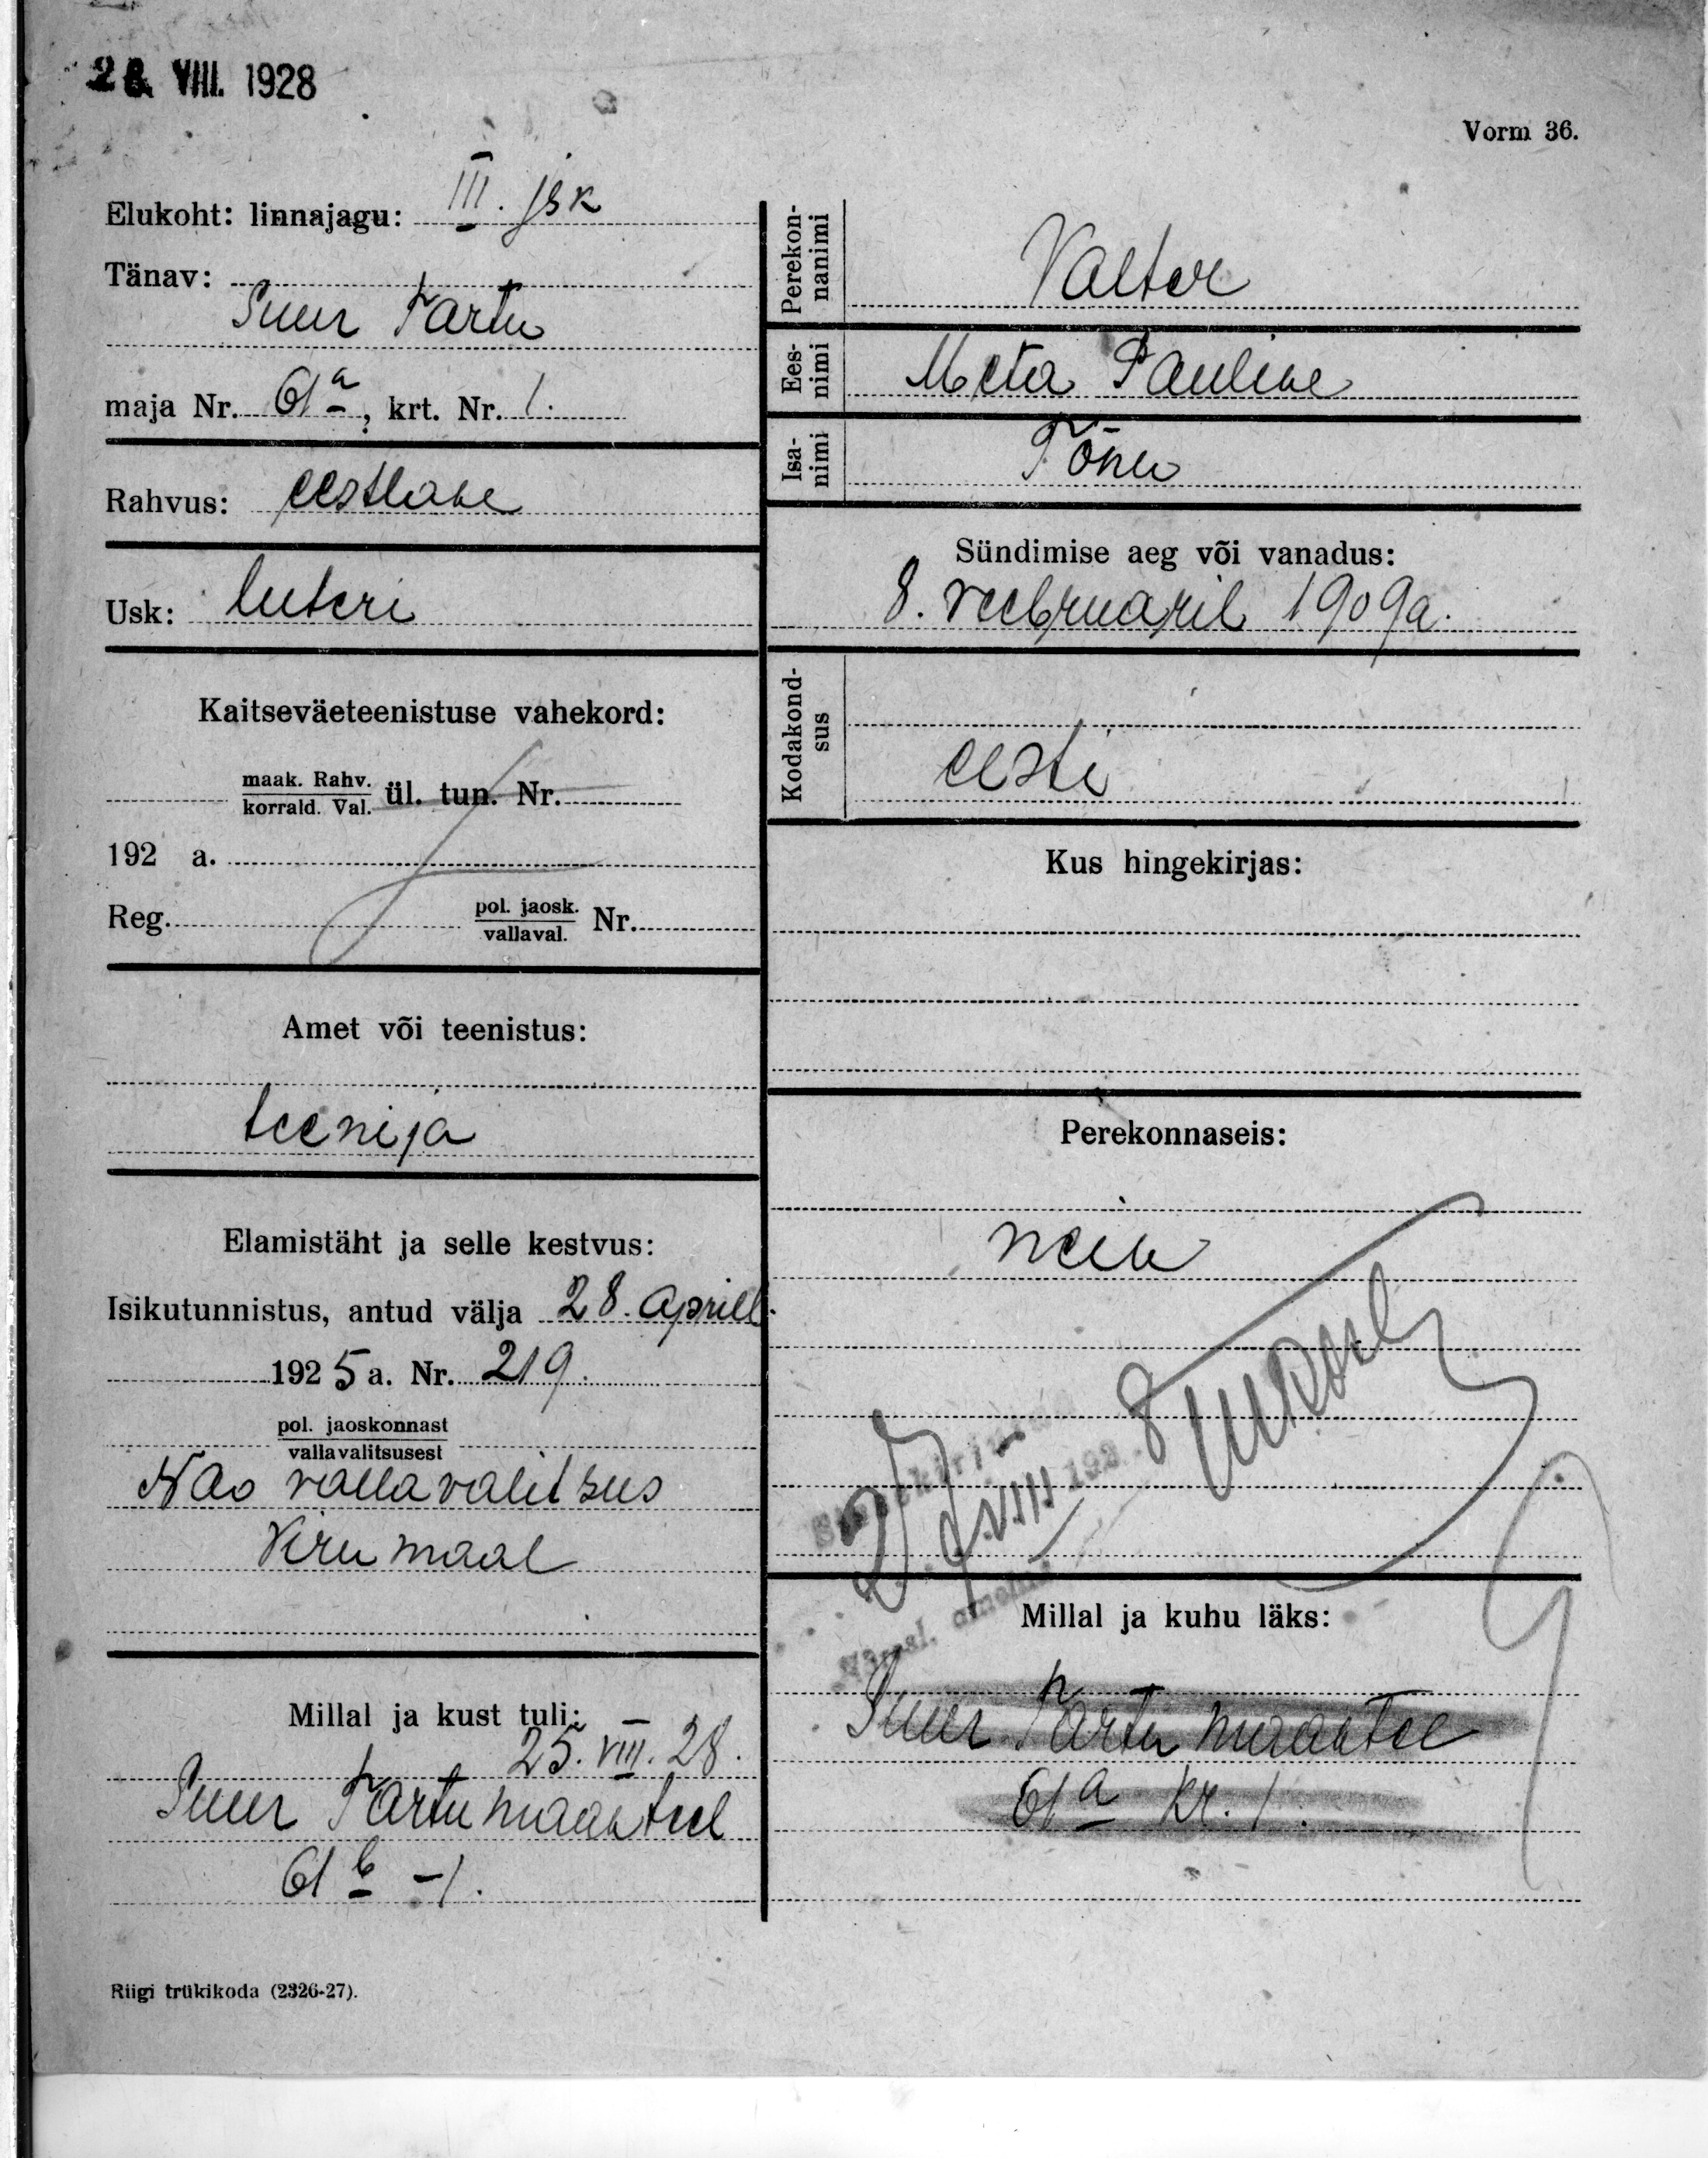 28. VIII. 1928
Vorm 36.
Elukoht: linnajagu: III. jsk
Tänav:
Suur Tartu
maja Nr. 61 a, krt. Nr. 1.
Rahvus: eestlane
Usk: luteri
Kaitseväeteenistuse vahekord:
maak. Rahv.
korrald. Val. ül. tun. Nr.
192 a.
Reg. pol. jaosk.
vallaval. Nr.
Amet või teenistus:
teenija
Elamistäht ja selle kestvus:
Isikutunnistus, antud välja 28. aprill.
1925 a. Nr. 219.
pol. jaoskonnast
vallavalitsusest
vallavalitsus
Virumaal
Millal ja kust tuli:
25. VIII. 28.
Suur Tartu maanteel
61 b - 1.
Riigi trükikoda (2326-27).
Perekon-
nanimi
Valter
Ees-
nimi
Meta Pauline
Isa-
nimi
Tõnu
Sündimise aeg või vanadus:
8. veebruaril 1909 a.
Kodakond-
sus
eesti
Kus hingekirjas:
Perekonnaseis:
neiu
VIII 192 8
Millal ja kuhu läks:
Suur Tartu maantee
61 a kr. 1.